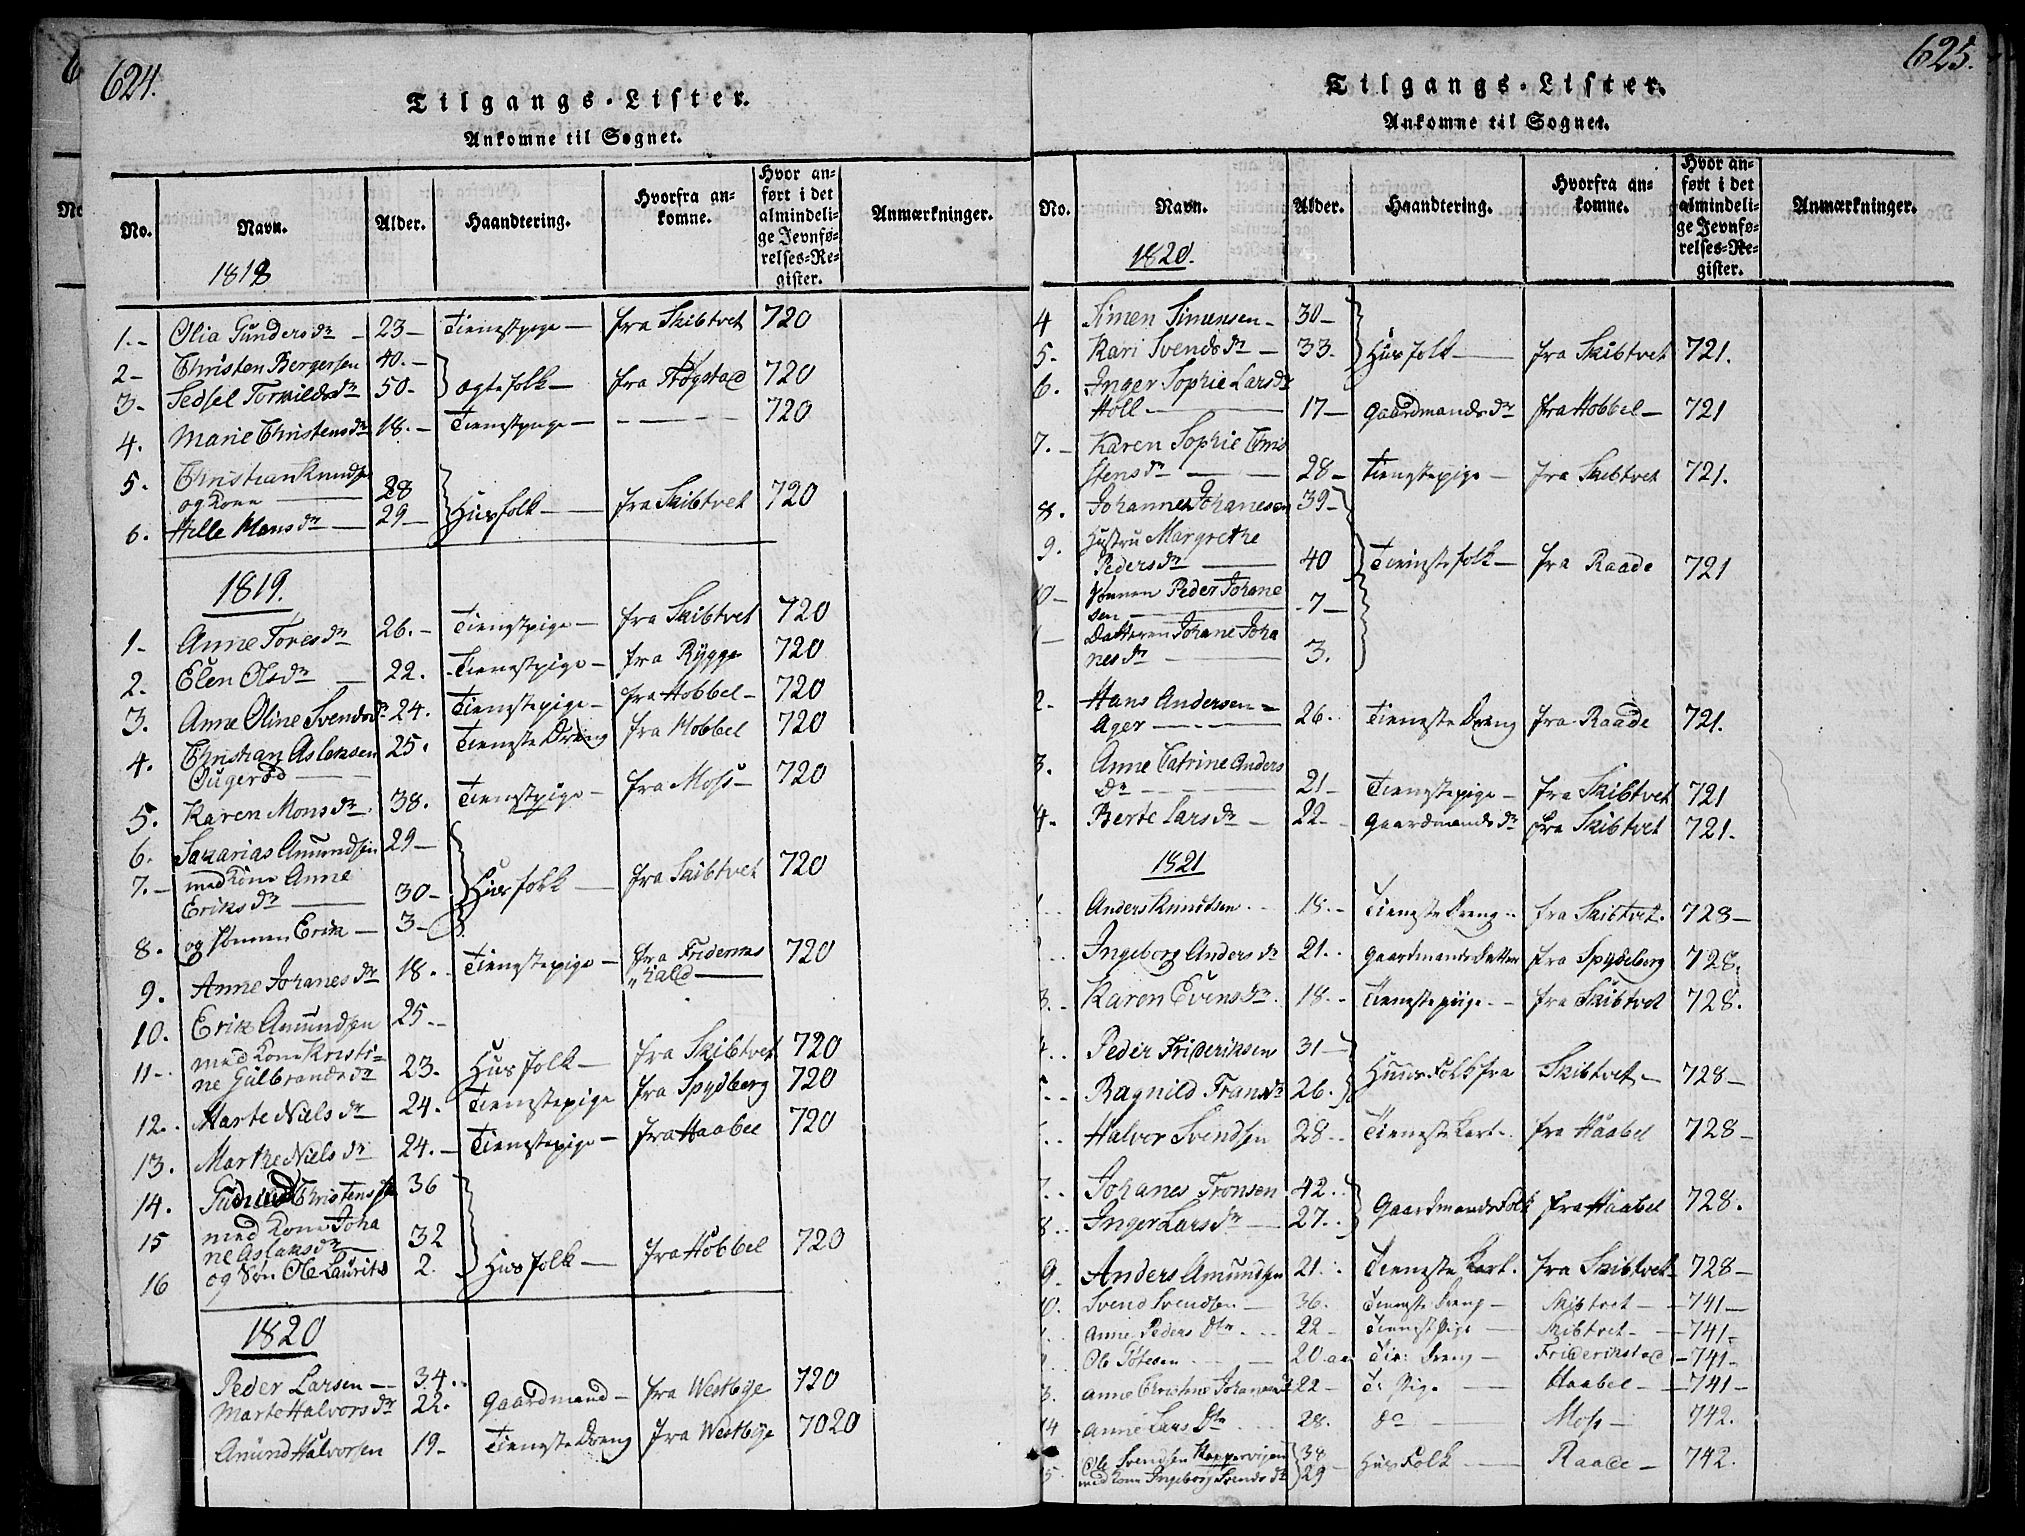 624.
Tilgangs-Lister.
Ankomne til Sognet.
No. Navn. Alder. Haandtering. Hvorfra ankomne. Hvor anført i det almindelige Jevnførelses-Register. Anmærkninger.
1818
1.- Olia Gundersdr 23- Tienestpige- fra Skibtvet 720
2- Christen Bergersen 40.-
3- Sedsel Tormildsdr 50- Ægtefolk- fra Trøgstad 720
4. Marie Christensdr 18.- Tienestpige - - - - 720
5. Christian Knudsen
og Kone 28
6. Hille Monsdr 29- Husfolk- fra Skibtvet 720
1819.
1- Anne Toresdr 26.- Tienestpige- fra Skibtvet 720
2. Elen Olsdr 22. Tienestpige- fra Rygge 720
3. Anne Oline Svendsdr 24. Tienestpige- fra Hobbel- 720
4. Christian Aslaksen 25. TienesteDreng fra Hobbel 720
Ougerød
5. Karen Monsdr. 38. Tienestpige- fra Moss- 720
6. Sakarias Amundsen 29-
7.- med Kone Anne
Eriksdr 30- Husfolk- fra Skibtvet 720
8. og Sønnen Erik- 3-
9. Anne Johanesdr 18.- Tienestepige- fra Fridericks
"hald 720
10. Erik Amundsen 25.-
11-. med Kone Kristi-
ne Gulbrandsdr 23. Husfolk- fra Skibtvet 720
12. Marte Nielsdr 24. Tienestepige fra Spydberg 720
13. Marthe Nielsdr 24.- Tienestepige- fra Haabel 720
14. Gudmund Christensen 36
15 med Kone Joha
ne Aslaksdr 32
16 og Søn Ole Laurits 2. Husfolk- fra Hobbel 720
1820
Peder Larsen- 34.
Marte Halvorsdr 22. Gaardmand- fra Westbye 720
Amund Halvorsen 19- TienesteDreng fra Westbye 7020
625.
Tilgangs-Lister.
Ankomne til Sognet.
No. Navn. Alder. Haandtering. Hvorfra ankomne. Hvor anført i det almindelige Jevnførelses-Register. Anmærkninger.
1820.
4 Simen Simensen- 30-
5. Kari Svendsdr- 33. Husfolk- fra Skibtvet 721.
6. Inger Sophie Larsdr
Holl 17- Gaardmandsdr fra Hobbel- 721
7.- Karen Sophie Chris
stensdr 28- Tienestepige- fra Skibtvet 721.
8. Johannes Johanesen 39-
9. Hustru Margrethe
Pedersdr 40 Tienestefolk- fra Raade 721
0- Sønnen Peder Johane
sen 7-
1- Datteren Johane Joha
nesdr 3.
2. Hans Andersen-
Ager 26. TienesteDreng fra Raade 721.
3. Anne Catrine Anders
Dr 21- Tienestepige- fra Skibtvet 721
4. Berte Larsdr- 22- Gaardmandsdr fra Skibtvet 721.
1821
1.. Anders Knudsen.. 18.- TienesteDreng.. fra Skibtvet. 728-
.. Ingeborg Andersdr 21.. Gaardmands Datter fra Spydeberg 728.
3.. Karen Evensdr. 18.- Tienestepiige.. fra Skibtvet 728.
4.. Peder Frideriksen 31-
5.. Ragnild Fransdr 26. Huus Folk fra Skibtvet- 728-
.. Halvor Svendsen 28.. TienesteKarl.. fra Haabel 728-
7.. Johanes Tronsen 42.
8.. Inger Larsdr 27. Gaardmands Folk fra Haabel 728.
9. Anders Amundsen 21. Tieneste Karl. fra Skibtvet 728-
10. Svend Svendsen- 36. Tieneste Dreng- Skibtvet- -741-
1.. Anne Peders Dtr... 22- Tienest Pige Skibtvet- -741-
.. Ole 20 aa Tie: Dreng- Friderikstad -741-
3. Anne Christine Johanesd 22- T: Pige Haabel- -741-
14 Anne Lars Dtr 28. do Moss- 742.
Ole Svendsen Koppervigen 34
5 med Kone Ingeborg Svendsdr 29 Hus Folk Raade- 742.